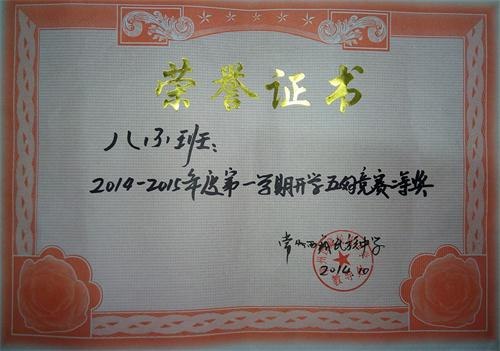 荣誉证书
八(3)班:
2014-2015年度第一学期开学五对竞赛二等奖
常州西藏民族中学
2014.10